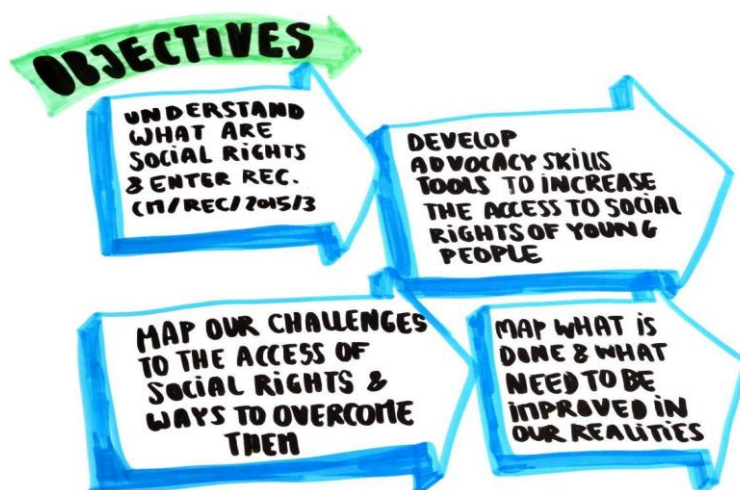 OBJECTIVES
UNDERSTAND
WHAT ARE
SOCIAL RIGHTS
& ENTER REC.
CM/REC/2015/3
DEVELOP
ADVOCACY SKILLS
TOOLS TO INCREASE
THE ACCESS TO SOCIAL
RIGHTS OF YOUNG
PEOPLE
MAP OUR CHALLENGES
TO THE ACCESS OF
SOCIAL RIGHTS &
WAYS TO OVERCOME
THEM
MAP WHAT IS
DONE & WHAT
NEED TO BE
IMPROVED IN
OUR REALITIES